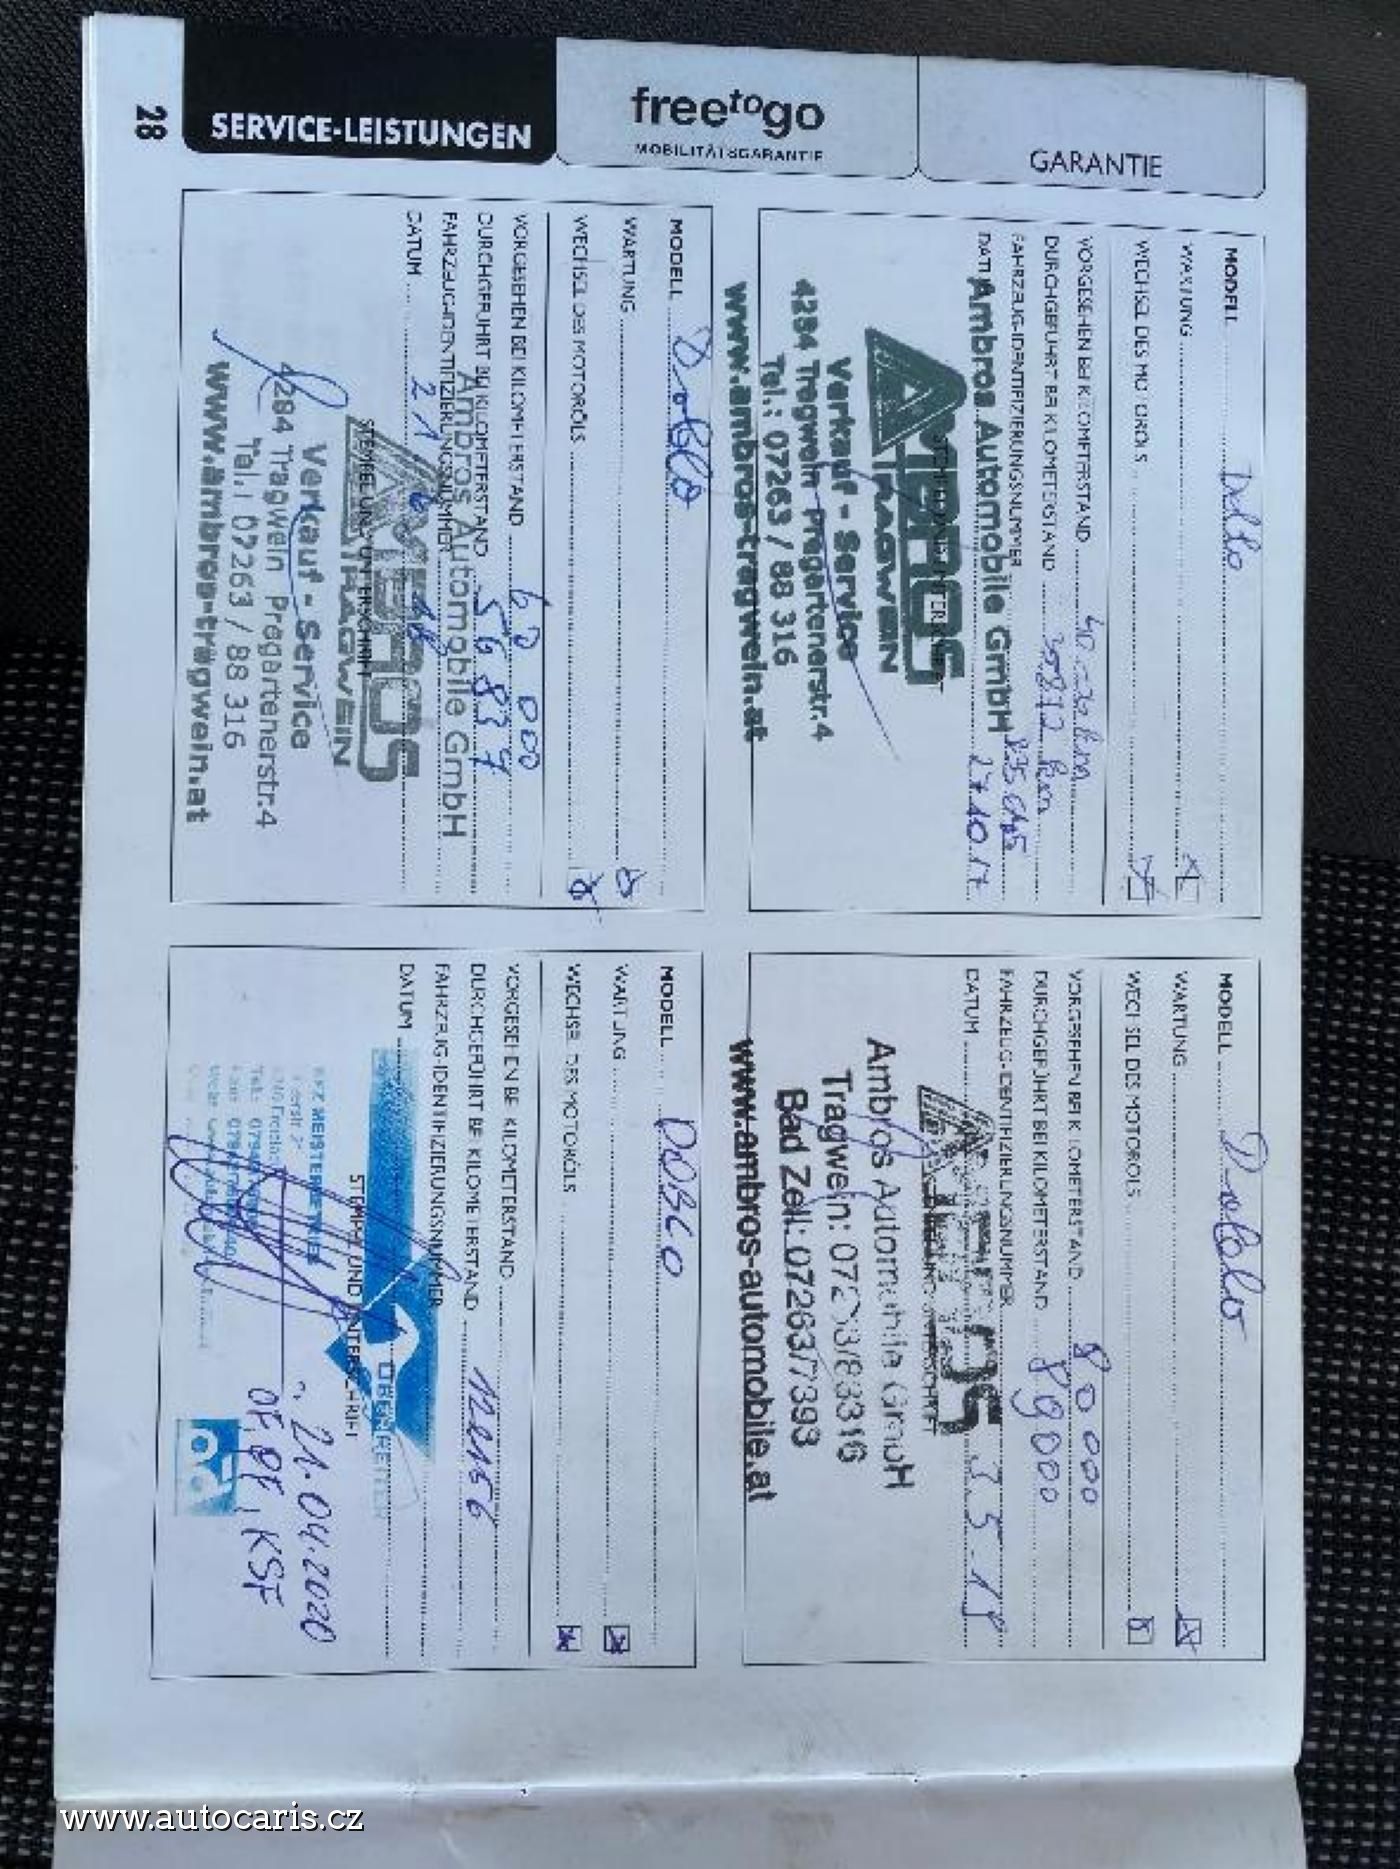 28
SERVICE-LEISTUNGEN
freetogo
MOBILITÄTSGARANTIE
GARANTIE
MODELL
WARTUNG
WECHSEL DES MOTORÖLS
VORGESEHEN BEI KILOMETERSTAND
DURCHGEFÜHRT BEI KILOMETERSTAND
FAHRZEUG-IDENTIFIZIERUNGSNUMMER
27.10.17
Ambros Automobile GmbH
AMBROS
TRAGWEIN
Verkauf - Service
4284 Tragwein Pregartenerstr.4
Tel.: 07263 / 88 316
www.ambros-tragwein.at
MODELL Doblo
WARTUNG
WECHSEL DES MOTORÖLS
VORGESEHEN BEI KILOMETERSTAND 80 000
DURCHGEFÜHRT BEI KILOMETERSTAND 89000
FAHRZEUG-IDENTIFIZIERUNGSNUMMER
DATUM
AMBROS
Ambros Automobile GmbH
Tragwein: 07263/88316
Bad Zell: 07263/7393
www.ambros-automobile.at
MODELL Doblo
WARTUNG
WECHSEL DES MOTORÖLS
VORGESEHEN BEI KILOMETERSTAND 60 000
DURCHGEFÜHRT BEI KILOMETERSTAND 56837
FAHRZEUG-IDENTIFIZIERUNGSNUMMER
DATUM
Ambros Automobile GmbH
AMBROS
TRAGWEIN
STEMPEL UND UNTERSCHRIFT
Verkauf - Service
4284 Tragwein Pregartenerstr.4
Tel.: 07263 / 88 316
www.ambros-tragwein.at
MODELL DOBLO
WARTUNG
WECHSEL DES MOTORÖLS
VORGESEHEN BEI KILOMETERSTAND
DURCHGEFÜHRT BEI KILOMETERSTAND
FAHRZEUG-IDENTIFIZIERUNGSNUMMER
DATUM
STEMPEL UND UNTERSCHRIFT
KFZ MEISTERBETRIEB
21.04.2020
OF, KSF
ad
www.autocaris.cz